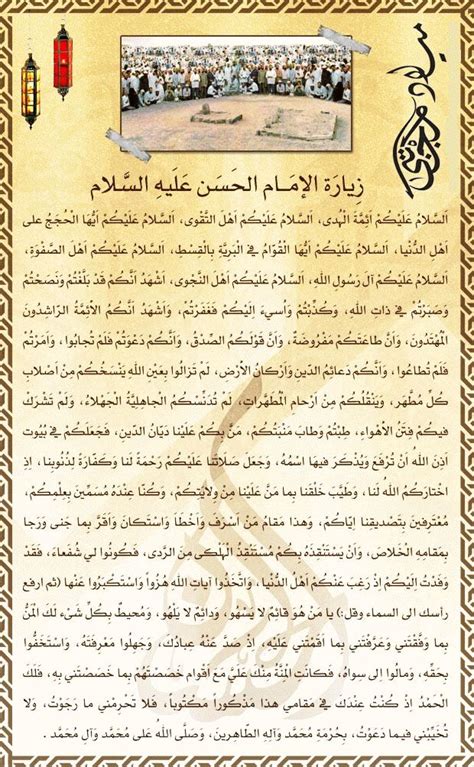 زِيارَة الإمَـام الحَسَن عَلَيهِ السَّلام
اَلسَّلامُ عَلَيْكُمْ اَئِمَّةَ الْهُدى، اَلسَّلامُ عَلَيْكُمْ اَهْلَ التَّقْوى، اَلسَّلامُ عَلَيْكُمْ اَيُّهَا الْحُجَجُ على
اَهْلِ الدُّنْيا، اَلسَّلامُ عَلَيْكُمْ اَيُّهَا الْقُوّامُ في الْبَرِيَّةِ بِالْقِسْطِ، اَلسَّلامُ عَلَيْكُمْ اَهْلَ الصَّفْوَةِ،
اَلسَّلامُ عَلَيْكُمْ آلَ رَسُولِ اللهِ، اَلسَّلامُ عَلَيْكُمْ اَهْلَ النَّجْوى، اَشْهَدُ اَنَّكُمْ قَدْ بَلَّغْتُمْ وَنَصَحْتُمْ
وَصَبَرْتُمْ في ذاتِ اللهِ، وَكُذِّبْتُمْ وَاُسيءَ اِلَيْكُمْ فَغَفَرْتُمْ، وَاَشْهَدُ اَنَّكُمُ الاَئِمَّةُ الرّاشِدُونَ
الْمُهْتَدُونَ، وَاَنَّ طاعَتَكُمْ مَفْرُوضَةٌ، وَاَنَّ قَوْلَكُمُ الصِّدْقُ، وَاَنَّكُمْ دَعَوْتُمْ فَلَمْ تُجابُوا، وَاَمَرْتُمْ
فَلَمْ تُطاعُوا، وَاَنَّكُمْ دَعائِمُ الدّينِ وَاَرْكانُ الاْرْضِ، لَمْ تَزالُوا بِعَيْنِ اللهِ يَنْسَخُكُمْ مِنْ اَصْلابِ
كُلِّ مُطَهَّر، وَيَنْقُلُكُمْ مِنْ اَرْحامِ الْمُطَهَّراتِ، لَمْ تُدَنِّسْكُمُ الْجاهِلِيَّةُ الْجَهْلاءُ، وَلَمْ تَشْرَكْ
فيكُمْ فِتَنُ الاْهْواءِ، طِبْتُمْ وَطابَ مَنْبَتُكُمْ، مَنَّ بِكُمْ عَلَيْنا دَيّانُ الدّينِ، فَجَعَلَكُمْ في بُيُوت
اَذِنَ اللهُ اَنْ تُرْفَعَ وَيُذْكَرَ فيهَا اسْمُهُ، وَجَعَلَ صَلاتَنا عَلَيْكُمْ رَحْمَةً لَنا وَكَفّارَةً لِذُنُوبِنا، اِذِ
اخْتارَكُمُ اللهُ لَنا، وَطَيَّبَ خَلْقَنا بِما مَنَّ عَلَيْنا مِنْ وِلايَتِكُمْ، وَكُنّا عِنْدَهُ مُسَمّينَ بِعِلْمِكُمْ،
مُعْتَرِفينَ بِتَصْديقِنا اِيّاكُمْ، وَهذا مَقامُ مَنْ اَسْرَفَ وَاَخْطَأَ وَاسْتَكانَ وَاَقَرَّ بِما جَنى وَرَجا
بِمَقامِهِ الْخَلاصَ، وَاَنْ يَسْتَنْقِذَهُ بِكُمْ مُسْتَنْقِذُ الْهَلْكى مِنَ الرَّدى، فَكُونُوا لي شُفَعاءَ، فَقَدْ
وَفَدْتُ اِلَيْكُمْ اِذْ رَغِبَ عَنْكُمْ اَهْلُ الدُّنْيا، وَاتَّخَذُوا آياتِ اللهِ هُزُواً وَاسْتَكْبَرُوا عَنْها (ثم ارفع
رأسك الى السماء وقل:) يا مَنْ هُوَ قائِمٌ لا يَسْهُو، وَدائِمٌ لا يَلْهُو، وَمُحيطٌ بِكُلِّ شَيْءٍ لَكَ الْمَنُّ
بِما وَفَّقْتَني وَعَرَّفْتَني بِما اَقَمْتَني عَلَيْهِ، اِذْ صَدَّ عَنْهُ عِبادُكَ، وَجَهِلُوا مَعْرِفَتَهُ، وَاسْتَخَفُّوا
بِحَقِّهِ، وَمالُوا اِلى سِواهُ، فَكانَتِ الْمِنَّةُ مِنْكَ عَلَيَّ مَعَ اَقْوام خَصَصْتَهُمْ بِما خَصَصْتَني بِهِ، فَلَكَ
الْحَمْدُ اِذْ كُنْتُ عِنْدَكَ في مَقامي هذا مَذْكُوراً مَكْتُوباً، فَلا تَحْرِمْني ما رَجَوْتُ، وَلا
تُخَيِّبْني فيما دَعَوْتُ، بِحُرْمَةِ مُحَمَّد وَآلِهِ الطّاهِرينَ، وَصَلَّى اللهُ عَلى مُحَمَّد وَآلِ مُحَمَّد .